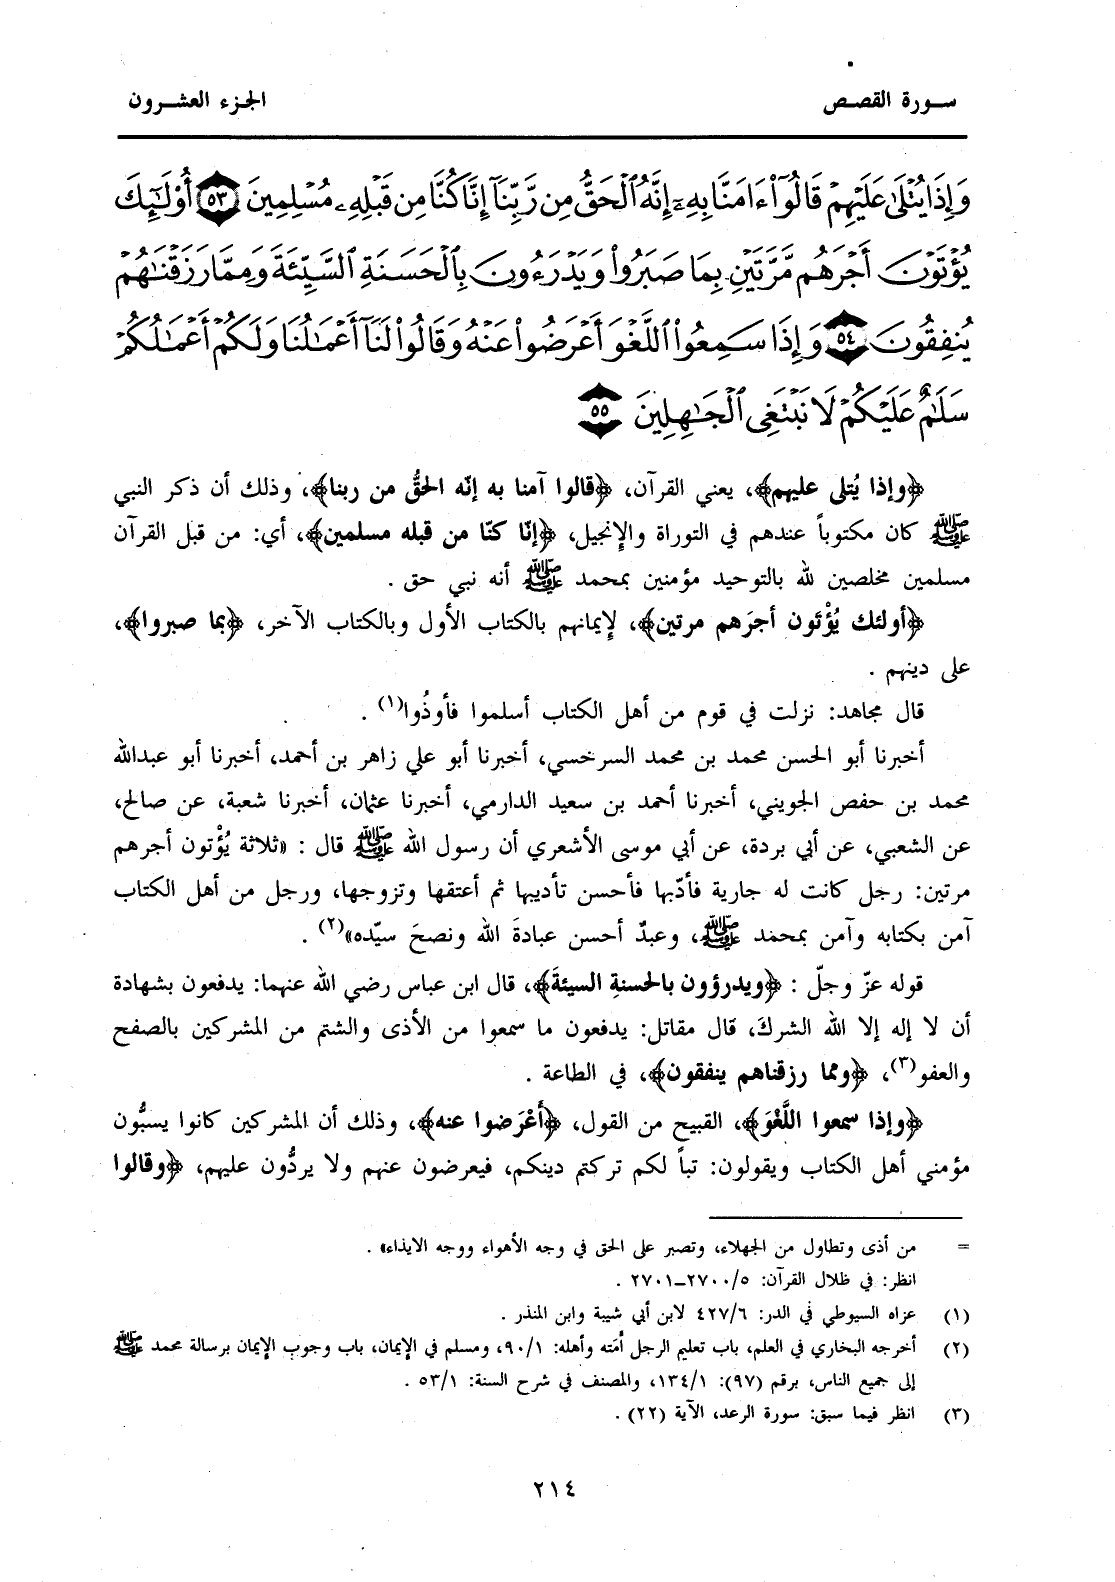 سورة القصص
الجزء العشرون
وَإِذَا يُتْلَىٰ عَلَيْهِمْ قَالُوٓا۟ ءَامَنَّا بِهِۦٓ إِنَّهُ ٱلْحَقُّ مِن رَّبِّنَآ إِنَّا كُنَّا مِن قَبْلِهِۦ مُسْلِمِينَ ٥٣ أُو۟لَـٰٓئِكَ
يُؤْتَوْنَ أَجْرَهُم مَّرَّتَيْنِ بِمَا صَبَرُوا۟ وَيَدْرَءُونَ بِٱلْحَسَنَةِ ٱلسَّيِّئَةَ وَمِمَّا رَزَقْنَـٰهُمْ
يُنفِقُونَ ٥٤ وَإِذَا سَمِعُوا۟ ٱللَّغْوَ أَعْرَضُوا۟ عَنْهُ وَقَالُوا۟ لَنَآ أَعْمَـٰلُنَا وَلَكُمْ أَعْمَـٰلُكُمْ
سَلَـٰمٌ عَلَيْكُمْ لَا نَبْتَغِى ٱلْجَـٰهِلِينَ ٥٥
﴿وإذا يُتلى عليهم﴾، يعني القرآن، ﴿قالوا آمنا به إنّه الحقُّ من ربنا﴾، وذلك أن ذكر النبي
ﷺ كان مكتوباً عندهم في التوراة والإنجيل، ﴿إنّا كنّا من قبله مسلمين﴾، أي: من قبل القرآن
مسلمين مخلصين لله بالتوحيد مؤمنين بمحمد ﷺ أنه نبي حق .
﴿أولئك يُؤْتَون أجرَهم مرتين﴾، لإيمانهم بالكتاب الأول وبالكتاب الآخر، ﴿بما صبروا﴾،
على دينهم .
قال مجاهد: نزلت في قوم من أهل الكتاب أسلموا فأوذُوا(١) .
أخبرنا أبو الحسن محمد بن محمد السرخسي، أخبرنا أبو علي زاهر بن أحمد، أخبرنا أبو عبدالله
محمد بن حفص الجويني، أخبرنا أحمد بن سعيد الدارمي، أخبرنا عثمان، أخبرنا شعبة، عن صالح،
عن الشعبي، عن أبي بردة، عن أبي موسى الأشعري أن رسول الله ﷺ قال : «ثلاثة يُؤْتون أجرهم
مرتين: رجل كانت له جارية فأدّبها فأحسن تأديبها ثم أعتقها وتزوجها، ورجل من أهل الكتاب
آمن بكتابه وآمن بمحمد ﷺ، وعبدٌ أحسن عبادةَ الله ونصحَ سيّده»(٢) .
قوله عزّ وجلّ : ﴿ويدرؤون بالحسنةِ السيئةَ﴾، قال ابن عباس رضي الله عنهما: يدفعون بشهادة
أن لا إله إلا الله الشركَ، قال مقاتل: يدفعون ما سمعوا من الأذى والشتم من المشركين بالصفح
والعفو(٣)، ﴿ومما رزقناهم ينفقون﴾، في الطاعة .
﴿وإذا سمعوا اللَّغْوَ﴾، القبيح من القول، ﴿أَعْرَضوا عنه﴾، وذلك أن المشركين كانوا يسبُّون
مؤمني أهل الكتاب ويقولون: تباً لكم تركتم دينكم، فيعرضون عنهم ولا يردُّون عليهم، ﴿وقالوا
= من أذى وتطاول من الجهلاء، وتصبر على الحق في وجه الأهواء ووجه الايذاء» .
انظر: في ظلال القرآن: ٢٧٠٠/٥-٢٧٠١ .
(١) عزاه السيوطي في الدر: ٤٢٧/٦ لابن أبي شيبة وابن المنذر .
(٢) أخرجه البخاري في العلم، باب تعليم الرجل أَمَته وأهله: ٩٠/١، ومسلم في الإيمان، باب وجوب الإيمان برسالة محمد ﷺ
إلى جميع الناس، برقم (٩٧): ١٣٤/١، والمصنف في شرح السنة: ٥٣/١ .
(٣) انظر فيما سبق: سورة الرعد، الآية (٢٢) .
٢١٤